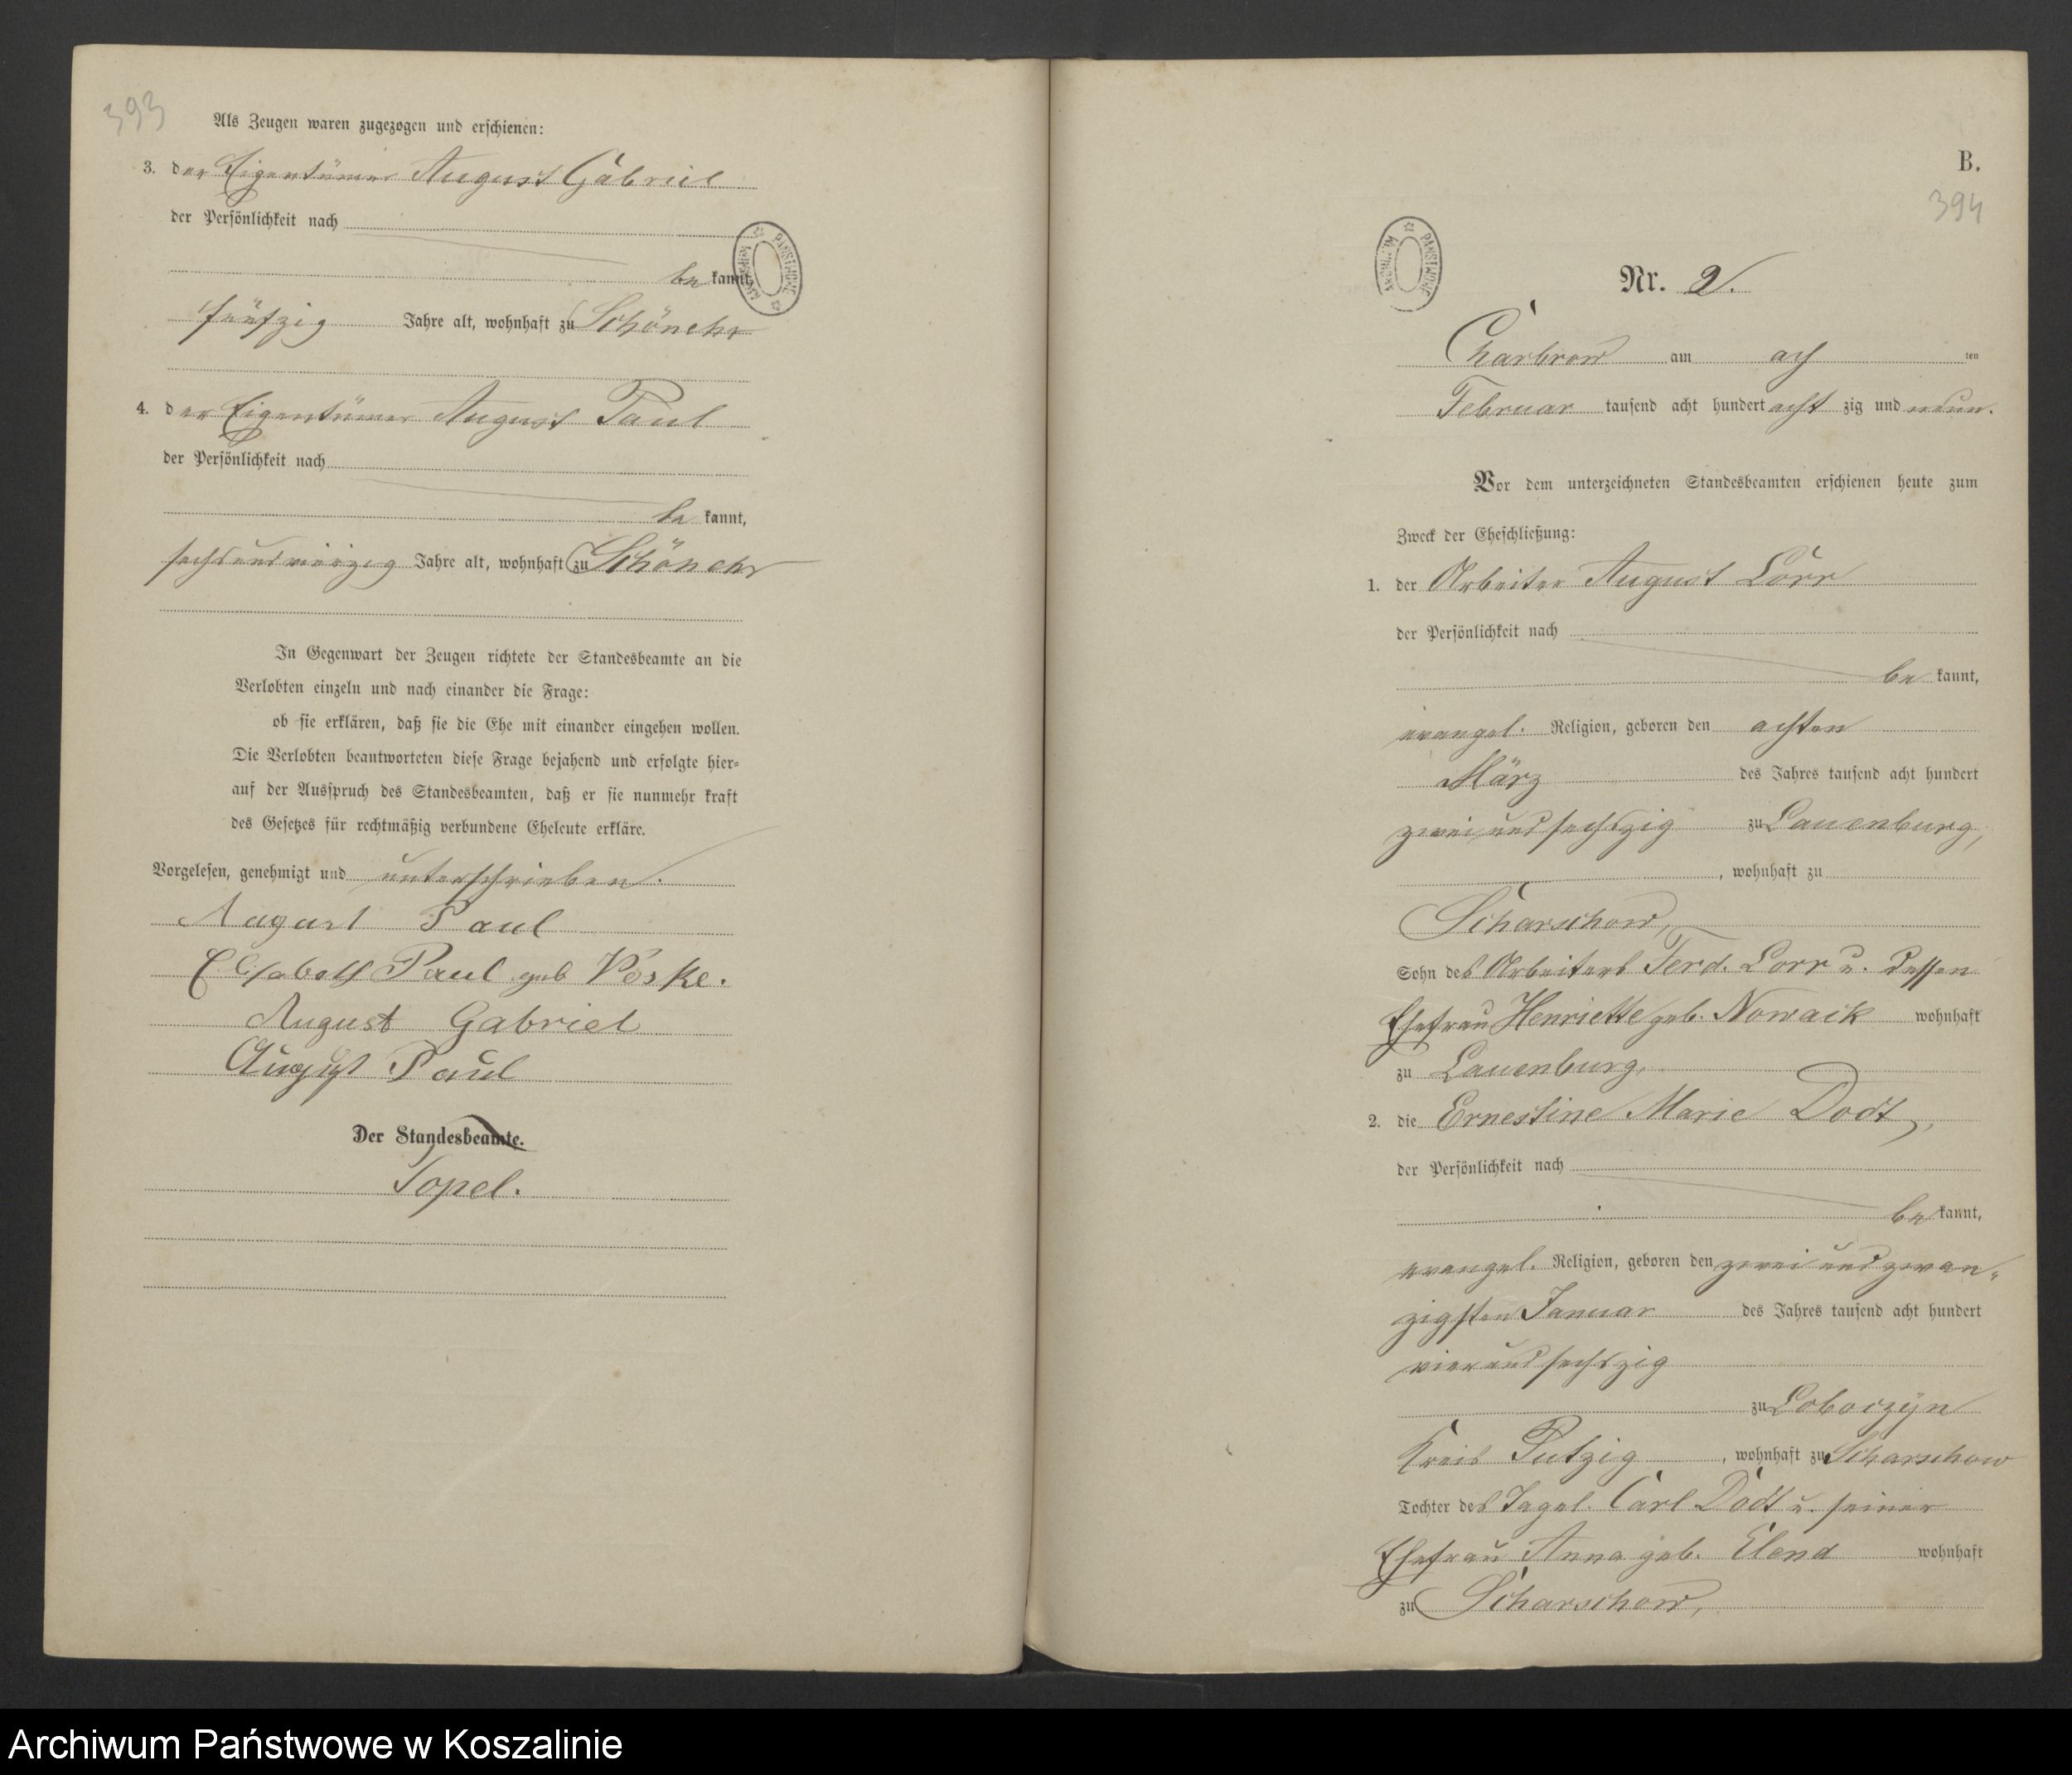 393
Als Zeugen waren zugezogen und erschienen:
3. der Eigentümer August Gabriel
der Persönlichkeit nach
be kannt,
fünfzig Jahre alt, wohnhaft zu Schönehr
4. der Eigentümer August Paul
der Persönlichkeit nach
be kannt,
sechsundvierzig Jahre alt, wohnhaft zu Schönehr
In Gegenwart der Zeugen richtete der Standesbeamte an die
Verlobten einzeln und nach einander die Frage:
ob sie erklären, daß sie die Ehe mit einander eingehen wollen.
Die Verlobten beantworteten diese Frage bejahend und erfolgte hier=
auf der Ausspruch des Standesbeamten, daß er sie nunmehr kraft
des Gesetzes für rechtmäßig verbundene Eheleute erkläre.
Vorgelesen, genehmigt und unterschrieben.
August Paul
Elisabeth Paul geb Vöske.
August Gabriel
August Paul
Der Standesbeamte.
Topel.
B.
394
Nr. 2.
Charbrow am ach ten
Februar tausend acht hundert acht zig und neun.
Vor dem unterzeichneten Standesbeamten erschienen heute zum
Zweck der Eheschließung:
1. der Arbeiter August Lorr
der Persönlichkeit nach
be kannt,
evangel. Religion, geboren den achten
März des Jahres tausend acht hundert
zwei und sechszig zu Lauenburg,
, wohnhaft zu
Scharschow,
Sohn des Arbeiters Ferd. Lorr u. dessen
Ehefrau Henriette geb. Nowack wohnhaft
zu Lauenburg,
2. die Ernestine Marie Dodt,
der Persönlichkeit nach
be kannt,
evangel. Religion, geboren den zwei und zwan-
zigsten Januar des Jahres tausend acht hundert
vier und sechszig
zu Loboczyn
Kreis Putzig, wohnhaft zu Scharschow
Tochter des Tagel. Carl Dodt u. seiner
Ehefrau Anna geb. Elend wohnhaft
zu Scharschow,
Archiwum Państwowe w Koszalinie